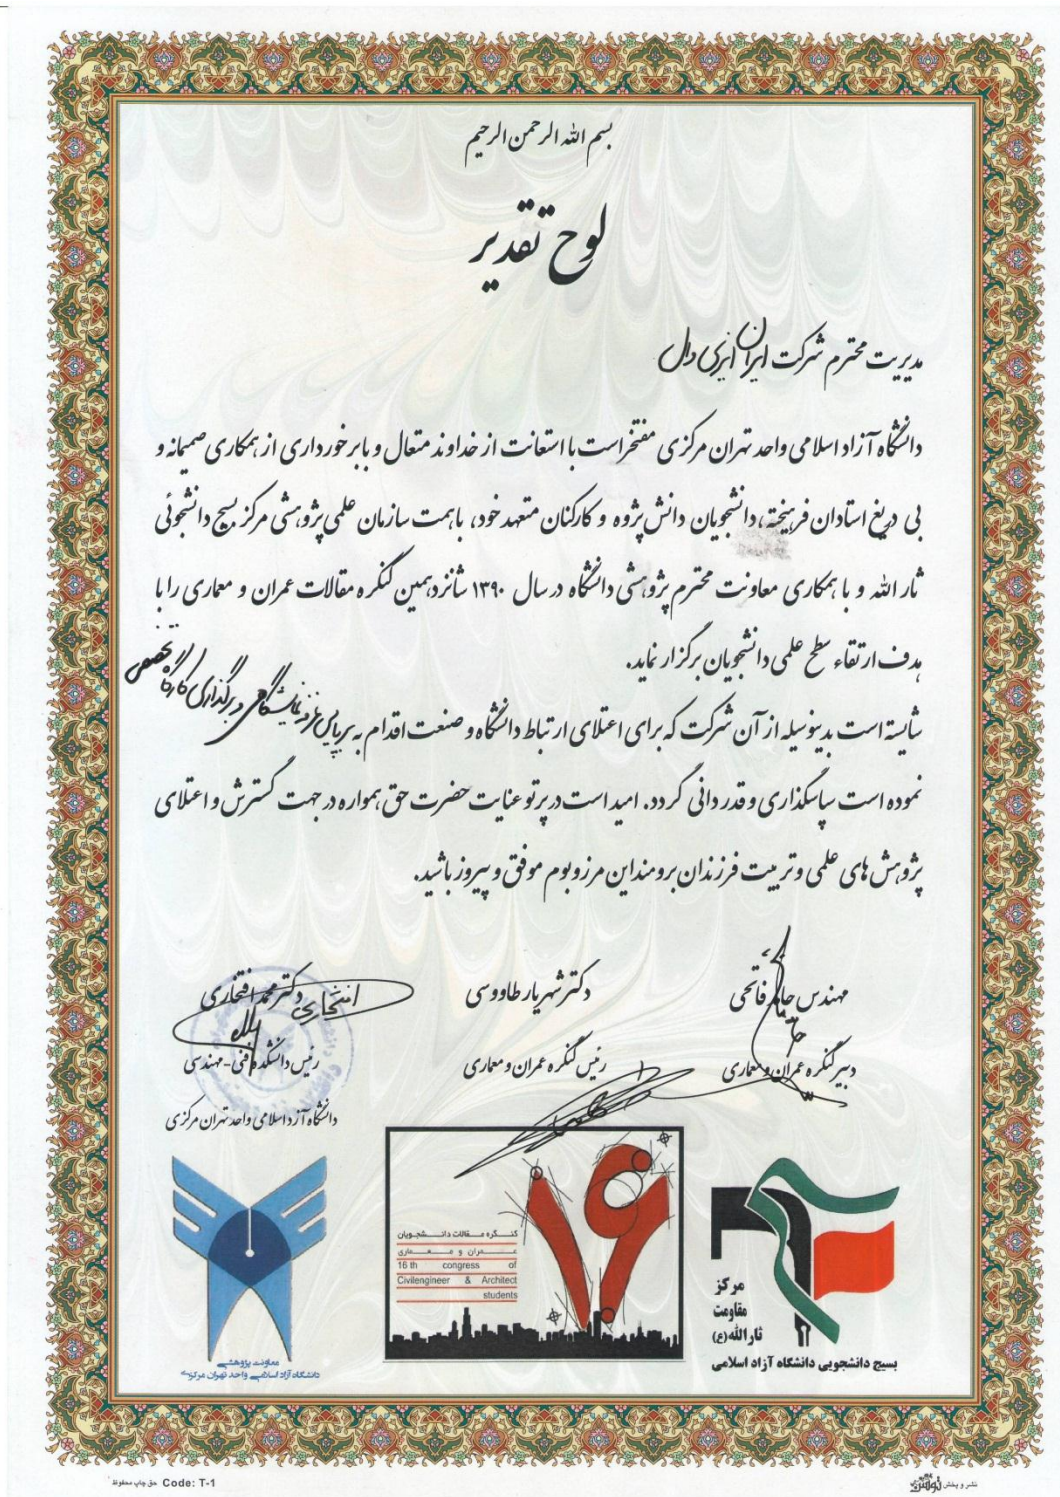 بسم الله الرحمن الرحیم
لوح تقدیر
مدیریت محترم شرکت ایران ایزی دال
دانشگاه آزاد اسلامی واحد تهران مرکزی مفتخر است با استعانت از خداوند متعال و با برخورداری از همکاری صمیمانه و
بی دریغ استادان فرهیخته، دانشجویان دانش پژوه و کارکنان متعهد خود، با همت سازمان علمی پژوهشی مرکز بسیج دانشجوئی
ثار الله و با همکاری معاونت محترم پژوهشی دانشگاه در سال ۱۳۹۰ شانزدهمین کنگره مقالات عمران و معماری را با
هدف ارتقاء سطح علمی دانشجویان برگزار نماید.
شایسته است بدینوسیله از آن شرکت که برای اعتلای ارتباط دانشگاه و صنعت اقدام به برپایی غرفه نمایشگاهی و برگذاری کارگاه تخصصی
نموده است سپاسگذاری و قدردانی گردد. امید است در پرتو عنایت حضرت حق همواره در جهت گسترش و اعتلای
پژوهش های علمی و تربیت فرزندان برومند این مرز و بوم موفق و پیروز باشید.
مهندس حامد فاتحی
دبیر کنگره عمران و معماری
دکتر شهریار طاووسی
رئیس کنگره عمران و معماری
دکتر محمد افتخاری
رئیس دانشکده فنی - مهندسی
دانشگاه آزاد اسلامی واحد تهران مرکزی
مرکز
مقاومت
ثارالله(ع)
بسیج دانشجویی دانشگاه آزاد اسلامی
۱۶
کنگره مقالات دانشجویان
عمران و معماری
16 th congress of
Civilengineer & Architect
students
معاونت پژوهشی
دانشگاه آزاد اسلامی واحد تهران مرکزی
نشر و پخش
حق چاپ محفوظ Code: T-1